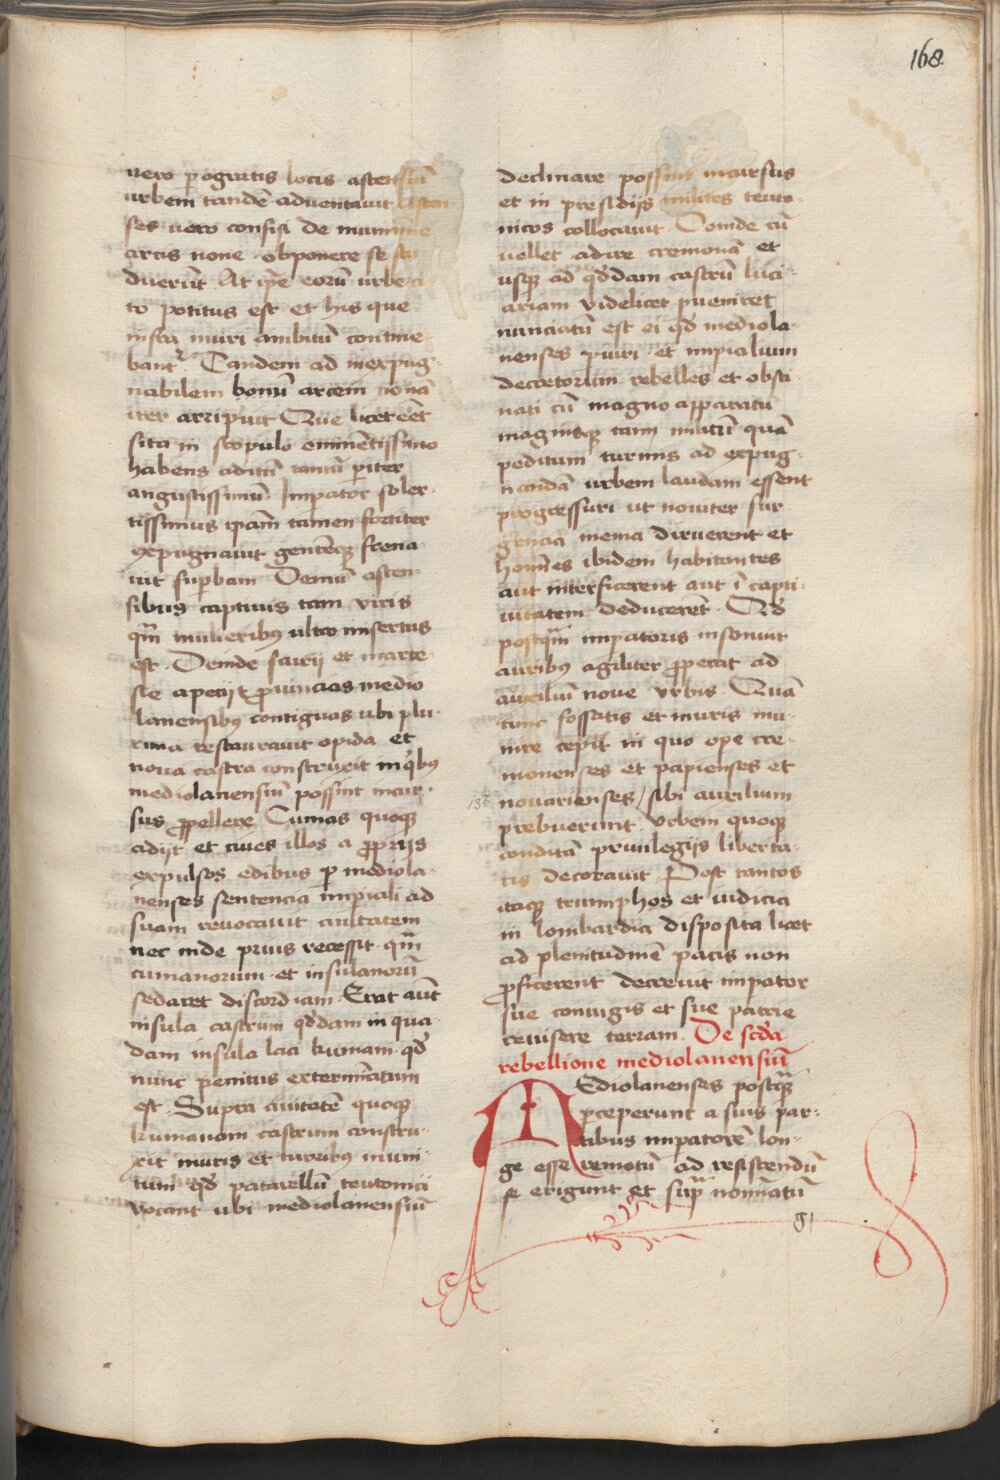 168
vero p ogratis locis astensiū
urbem tandē adventavit Asten
ses vero confisi de munimine
arcis none obponere se stu
duerūt At ip̄e eorū urbe ci
to potitus est et his que
infra muri ambitū contine
bantr Tandem ad inexpug
nabilem bonū arcem nonā
iter arripuit Que licet eēt
sita in scopulo eminētissimo
habens aditū tantū piter
angustissimū Impator soler
tissimus ipam tamen fortiter
expugnavit gentēqꝫ frena
vit supbam Demū asten
sibus captivis tam viris
qm̄ mulieribꝫ ultro misertus
est Deinde savij et marte
sie apetijt provincias medio
lanensibꝫ contiguas ubi plu
rima restauravit opida et
nova castra construxit in qͥbꝫ
mediolanensiū possint incur
sus ꝓpellere Cumas quoqꝫ
adijt et cives illos a ꝓprijs
expulsos edibus p mediola
nenses sentencia impiali ad
suam revocavit civitatem
nec inde prius recessit qm̄
cumanorum et insulanorū
sedaret discordiam Erat aūt
insula castrum qd̄dam in qua
dam insula laci kumani qd̄
nunc penitus extermīatum
est Supra civitatē quoqꝫ
kumanom castrum constru
xit muris et turribꝫ muni
tum qd̄ patarellū teutonici
vocant ubi mediolanensiū
declinare possint incursus
et in presidijs milites teuto
nicos collocavit Deinde cū
vellet adire cremonā et
usqꝫ ad qd̄dam castrū luci
ariam videlicet pveniret
nunciatū est ei qd̄ mediola
nenses piuri et impialium
decretorum rebelles et obsti
nati cū magno apparatu
magnisqꝫ tam militū quā
peditum turmis ad expug
nandā urbem laudam essent
progressuri ut noviter sur
gencia menia diruerent et
homīes ibidem habitantes
aut interficerent aut ī capti
vitatem deducerēt Qd̄
postqm̄ impatoris insonuit
auribꝫ agiliter ꝓperat ad
auxiliū nove urbis Quā
tunc fossatis et muris mu
nire cepit in quo ope cre
monenses et papienses et
novarienses / sibi auxilium
prebuerunt Urbem quoqꝫ
conditā privilegijs liberta
tis decoravit Post tantos
itaqꝫ triumphos et iudicia
in lombardia disposita licet
ad plenitudinē pacis non
ꝓficerent decrevit impator
sue coniugis et sue patrie
revisere terram De scd̄a
rebellione mediolanensiū
MEdiolanenses postqꝫ
pceperunt a suis par
tibus impatorē lon
ge esse remotū ad resistendū
se erigunt et sup nomīatū